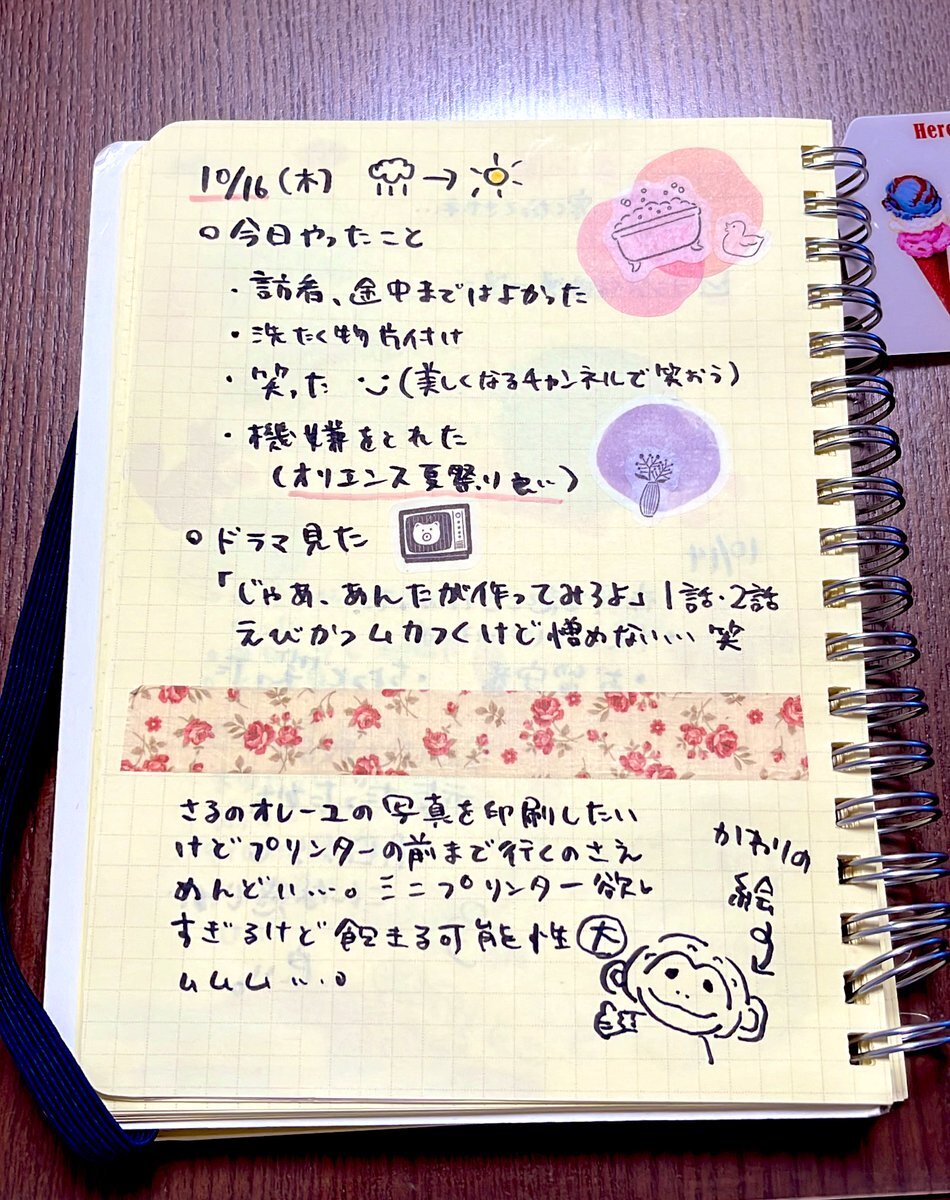 10/16 (木) →
○ 今日やったこと
・訪看、途中まではよかった
・洗たく物片付け
・笑った (美しくなるチャンネルで笑おう)
・機嫌をとれた
(オリエンス夏祭り良い)
○ ドラマ見た
「じゃあ、あんたが作ってみろよ」1話・2話
えびかつムカつくけど憎めない… 笑
さるのオレーユの写真を印刷したい
けどプリンターの前まで行くのさえ
めんどい…。ミニプリンター欲し
すぎるけど飽きる可能性大
ムムム…。
かわりの
絵
Here